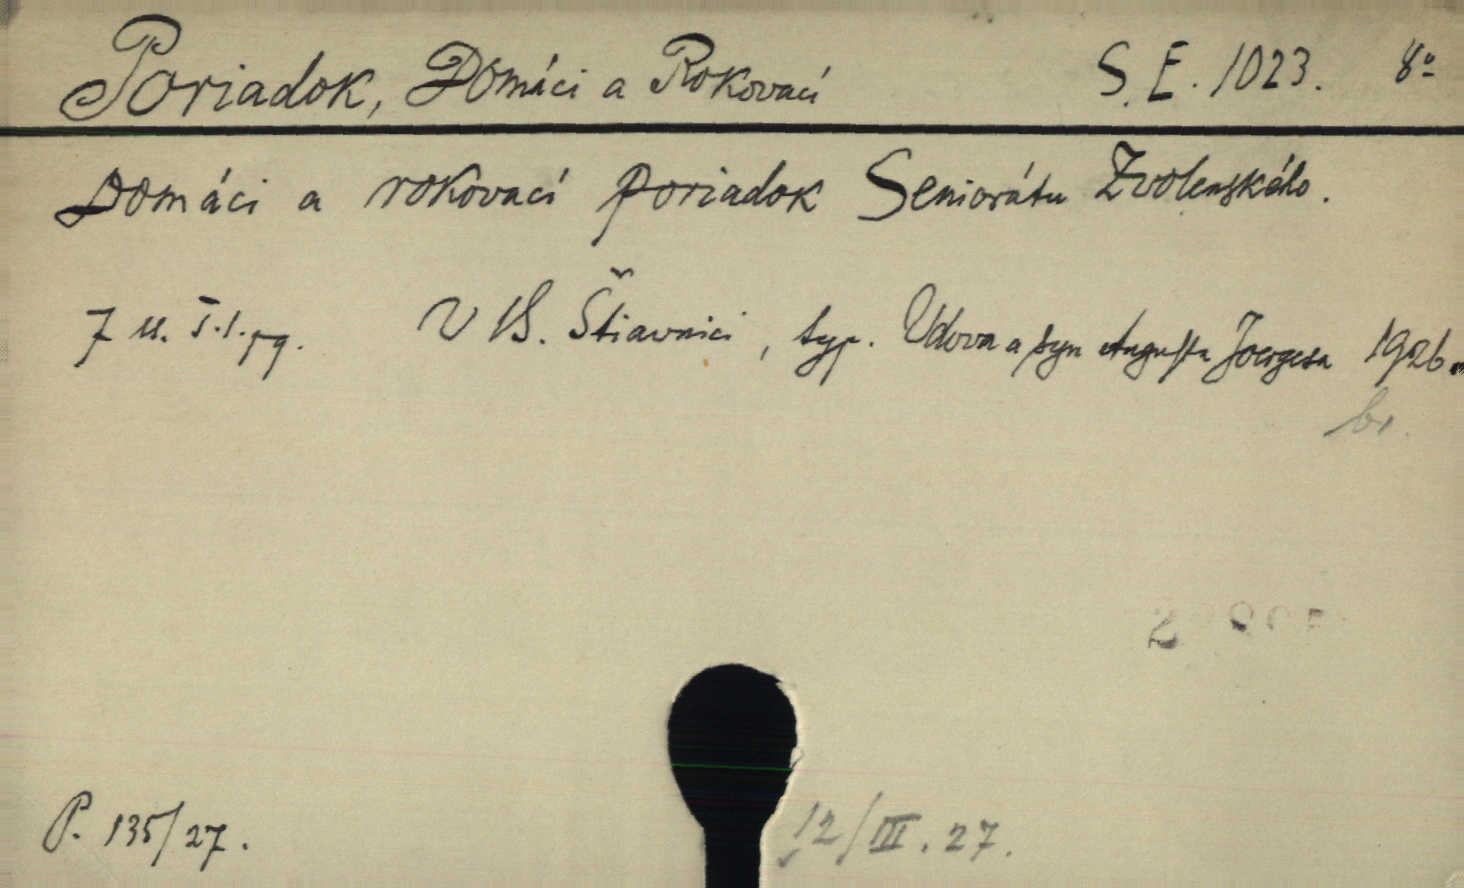 Poriadok, Domáci a Rokovací S. E. 1023. 8º
Domáci a rokovací poriadok Seniorátu Zvolenského.
7 u. I. l. pg. V B. Štiavnici, typ. Udova a syn Augusta Joergesa 1926.
br.
P. 135/27. 12/III. 27.